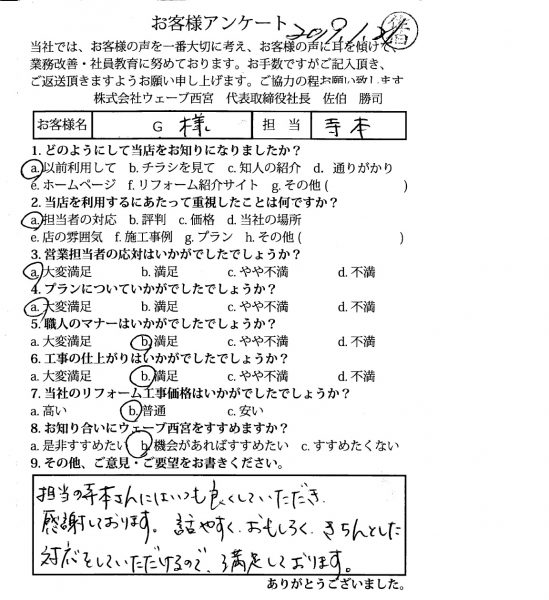 お客様アンケート 2019.1.21
当社では、お客様の声を一番大切に考え、お客様の声に耳を傾けて、
業務改善・社員教育に努めております。お手数ですがご記入頂き、
ご返送頂きますようお願い申し上げます。ご協力の程お願い致します
株式会社ウェーブ西宮 代表取締役社長 佐伯 勝司
お客様名 G 様 担当 寺本
1. どのようにして当店をお知りになりましたか？
a. 以前利用して b. チラシを見て c. 知人の紹介 d. 通りがかり
e. ホームページ f. リフォーム紹介サイト g. その他 ( )
2. 当店を利用するにあたって重視したことは何ですか？
a. 担当者の対応 b. 評判 c. 価格 d. 当社の場所
e. 店の雰囲気 f. 施工事例 g. プラン h. その他 ( )
3. 営業担当者の応対はいかがでしたでしょうか？
a. 大変満足 b. 満足 c. やや不満 d. 不満
4. プランについていかがでしたでしょうか？
a. 大変満足 b. 満足 c. やや不満 d. 不満
5. 職人のマナーはいかがでしたでしょうか？
a. 大変満足 b. 満足 c. やや不満 d. 不満
6. 工事の仕上がりはいかがでしたでしょうか？
a. 大変満足 b. 満足 c. やや不満 d. 不満
7. 当社のリフォーム工事価格はいかがでしたでしょうか？
a. 高い b. 普通 c. 安い
8. お知り合いにウェーブ西宮をすすめますか？
a. 是非すすめたい b. 機会があればすすめたい c. すすめたくない
9. その他、ご意見・ご要望をお書きください。
担当の寺本さんにはいつも良くしていただき
感謝しております。話やすく、おもしろく、きちんとした
対応をしていただけるので、満足しております。
ありがとうございました。